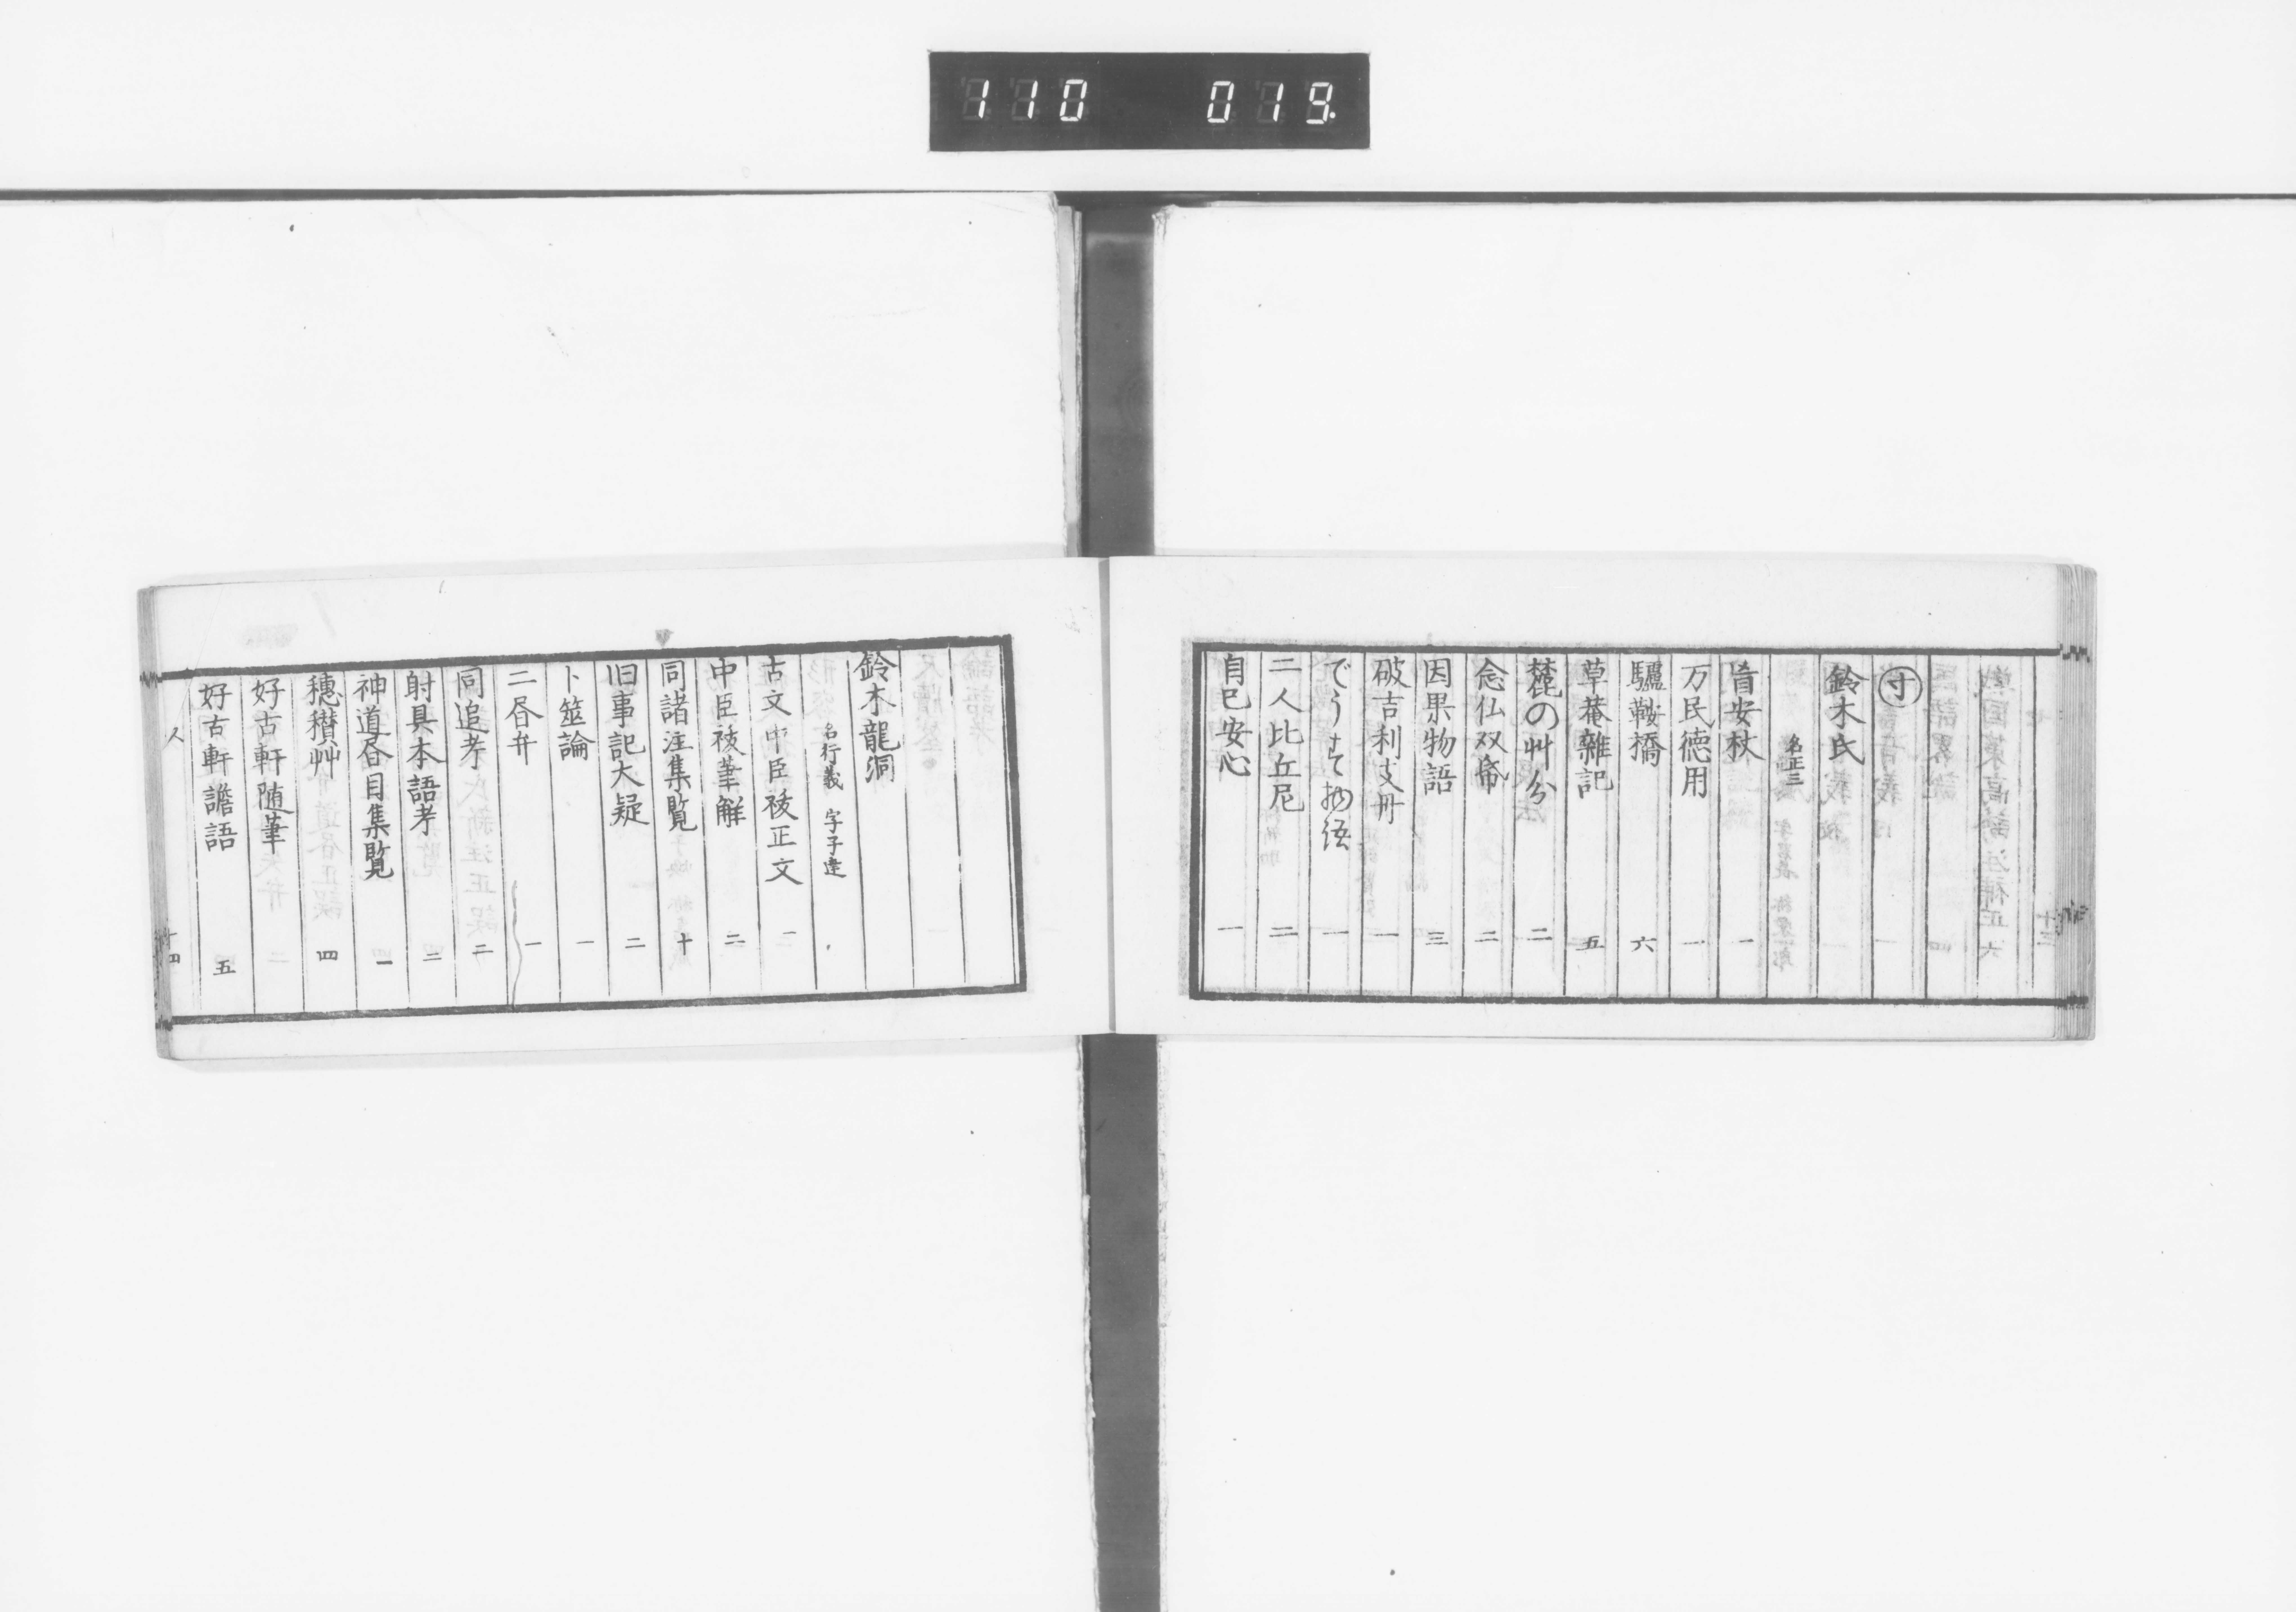 110 019
寸
鈴木氏
名正三
盲安杖 一
万民徳用 一
驢鞍橋 六
草菴雑記 五
麓の艸分 二
念仏双帋 二
因果物語 三
破吉利支丹 一
でうす物語 一
二人比丘尼 二
自己安心 一
鈴木龍洞
名行義 字子達
古文中臣祓正文 一
中臣祓筆解 二
同諸注集覧 十
旧事記大疑 二
卜筮論 一
二昏弁 一
同追考 二
射具本語考 二
神道昏目集覧 一
穂積艸 四
好古軒随筆
好古軒譫語 五
十四